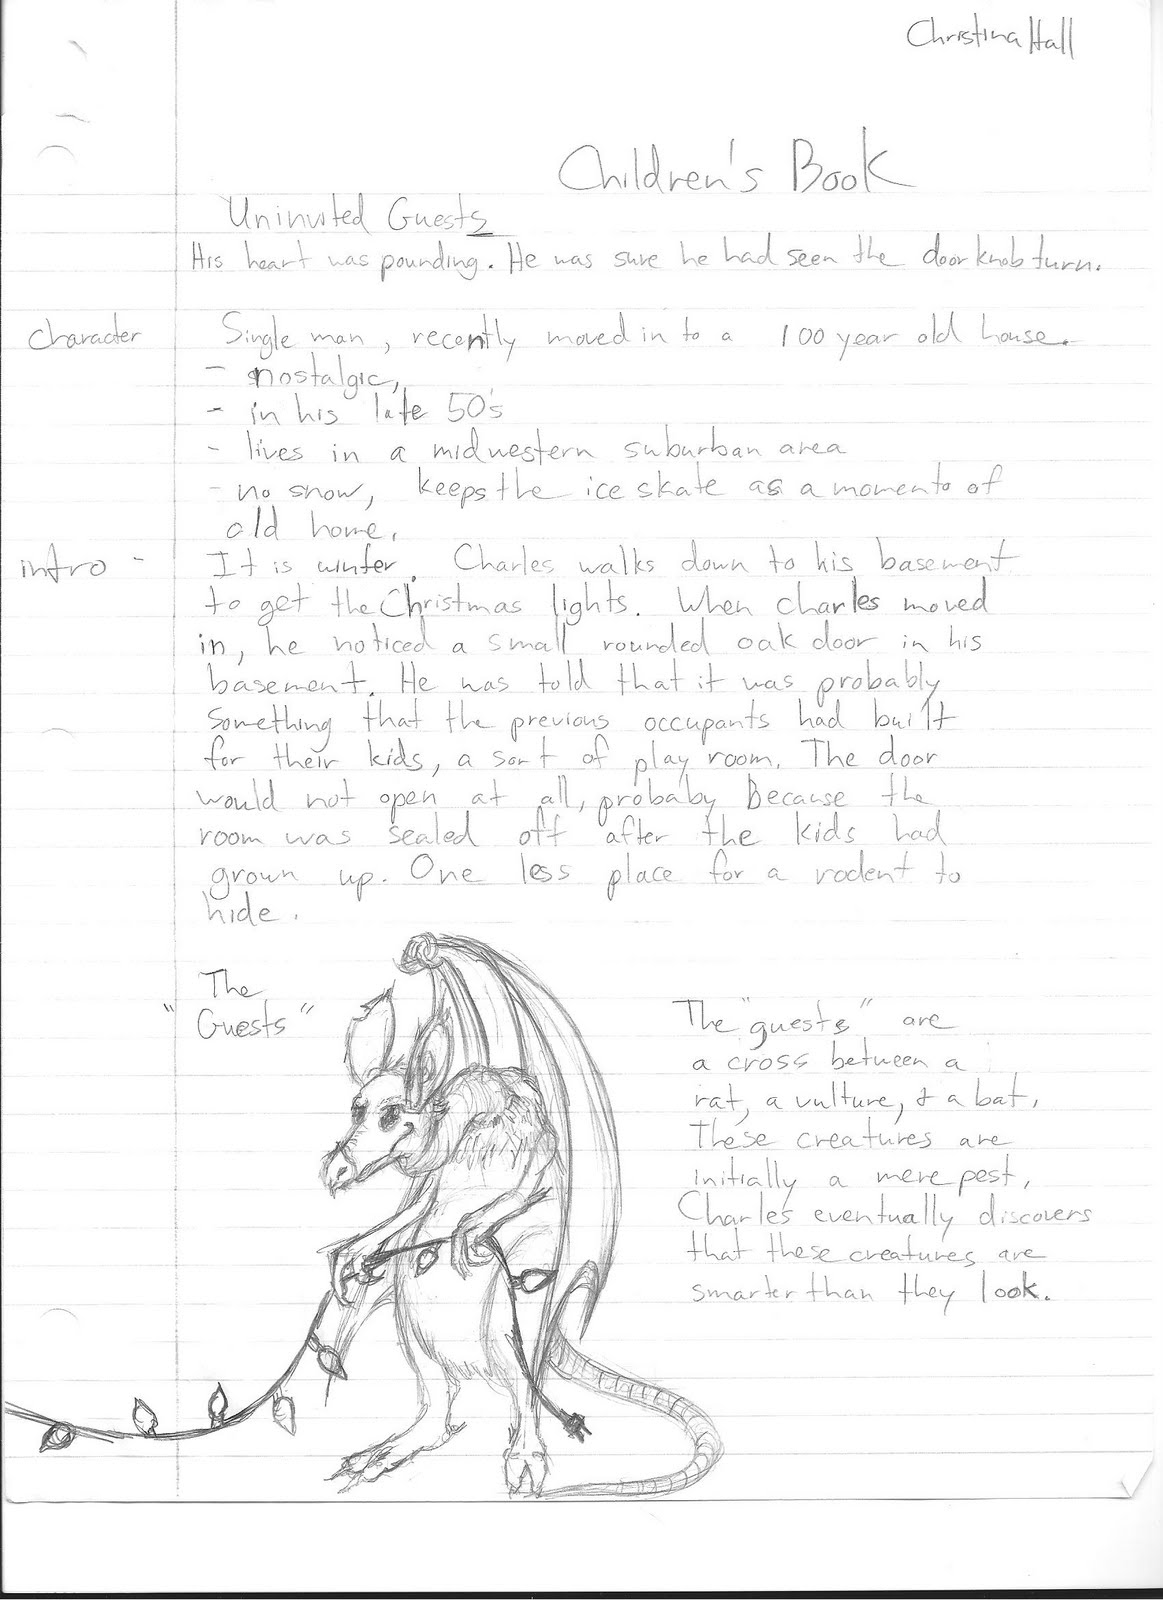 Christina Hall
Children's Book
Uninvited Guests
His heart was pounding. He was sure he had seen the door knob turn.
character
Single man, recently moved in to a 100 year old house.
- nostalgic,
- in his late 50's
- lives in a midwestern suburban area
- no snow, keeps the ice skate as a momento of
old home.
intro -
It is winter. Charles walks down to his basement
to get the Christmas lights. When Charles moved
in, he noticed a small rounded oak door in his
basement. He was told that it was probably
something that the previous occupants had built
for their kids, a sort of play room. The door
would not open at all, probaby because the
room was sealed off after the kids had
grown up. One less place for a rodent to
hide.
The
"Guests"
The "guests" are
a cross between a
rat, a vulture, & a bat.
These creatures are
initially a mere pest,
Charles eventually discovers
that these creatures are
smarter than they look.